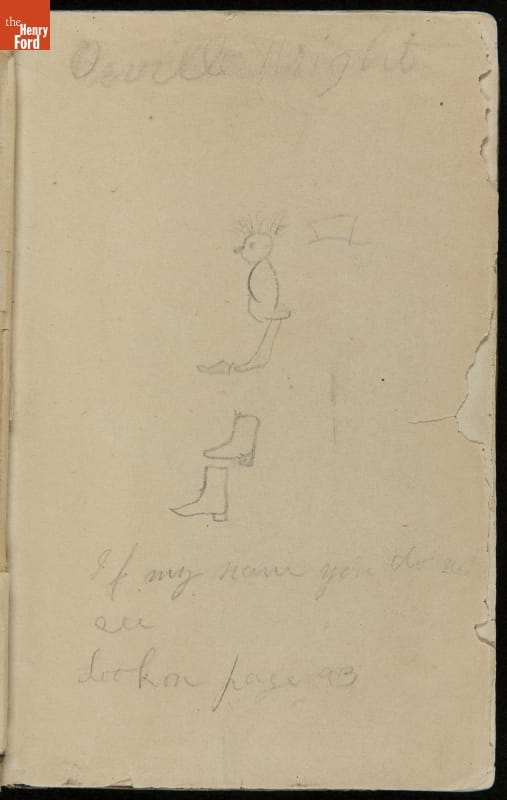 the
Henry
Ford
Orville Wright
If my name you do not
see
Look on page 93